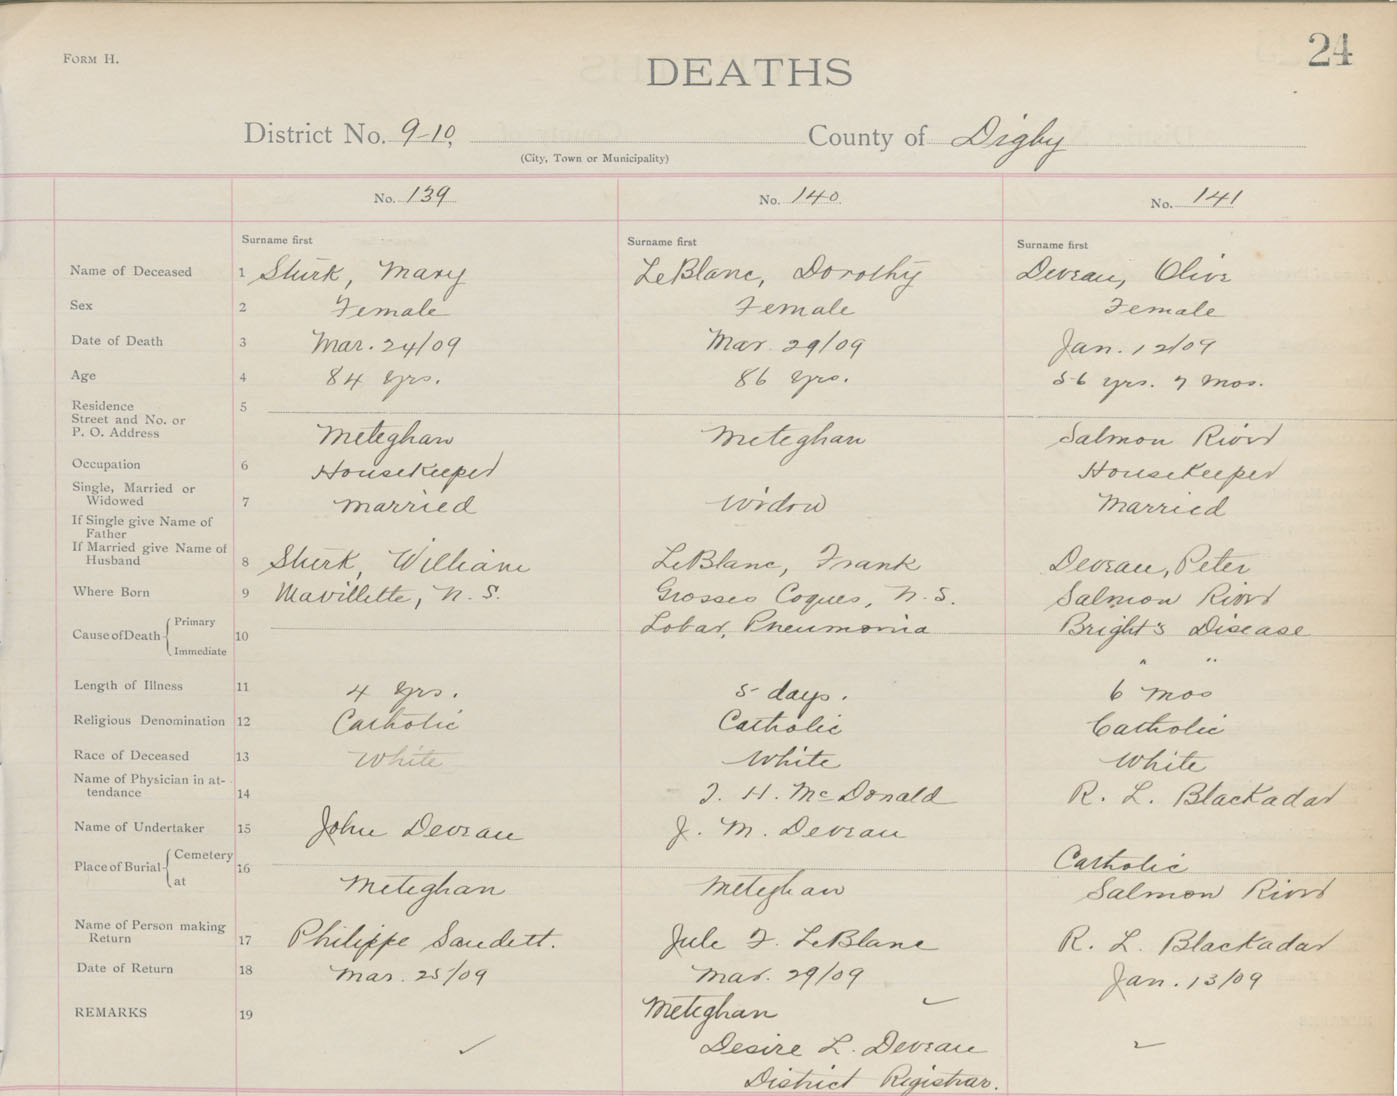 FORM H.
24
DEATHS
District No. 9-10, County of Digby
(City, Town or Municipality)
No. 139 No. 140 No. 141
Surname first Surname first Surname first
Name of Deceased 1 Sturk, Mary LeBlanc, Dorothy Deveau, Olive
Sex 2 Female Female Female
Date of Death 3 Mar. 24/09 Mar. 29/09 Jan. 12/09
Age 4 84 yrs. 86 yrs. 56 yrs. 7 mos.
Residence 5
Street and No. or
P. O. Address Meteghan Meteghan Salmon River
Occupation 6 Housekeeper Housekeeper
Single, Married or
Widowed 7 Married Widow Married
If Single give Name of
Father
If Married give Name of
Husband 8 Sturk, William LeBlanc, Frank Deveau, Peter
Where Born 9 Mavillette, N. S. Grosses Coques, N. S. Salmon River
Cause of Death Primary 10 Lobar, Pneumonia Bright's Disease
Immediate " "
Length of Illness 11 4 yrs. 5 days. 6 mos
Religious Denomination 12 Catholic Catholic Catholic
Race of Deceased 13 White White White
Name of Physician in at-
tendance 14 J. H. McDonald R. L. Blackadar
Name of Undertaker 15 John Deveau J. M. Deveau
Place of Burial Cemetery 16 Catholic
at Meteghan Meteghan Salmon River
Name of Person making
Return 17 Philippe Saudett. Jule F. LeBlanc R. L. Blackadar
Date of Return 18 Mar. 25/09 Mar. 29/09 Jan. 13/09
REMARKS 19 Meteghan
Desire L. Deveau
District Registrar.